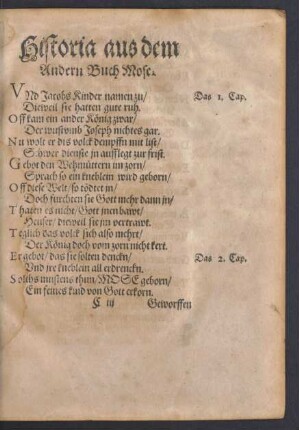 Historia aus dem
Andern Buch Mose.
VNd Jacobs Kinder namen zu/ Das 1. Cap.
Dieweil sie hatten gute ruh.
Off kam ein ander König zwar/
Der wust vmb Joseph nichtes gar.
Nu wolt er dis volck dempffn mit list/
Schwer dienste jn aufflegt zur frist.
Gebot den Wehmüttern im zorn/
Sprach so ein kneblein wird geborn/
Off diese Welt/ so tödtet jn/
Doch furchten sie Gott mehr dann jn/
Thaten es nicht/ Gott jnen bawt/
Heuser/ dieweil sie jm vertrawt.
Teglich das volck sich also mehrt/
Der König doch vom zorn nicht kert.
Er gebot/ das sie solten denckn/
Vnd jre kneblein all erdrenckn.
Das 2. Cap.
Solchs musten thun/ MOSE geborn/
Ein feines kind von Gott erkorn.
C iij Geworffen